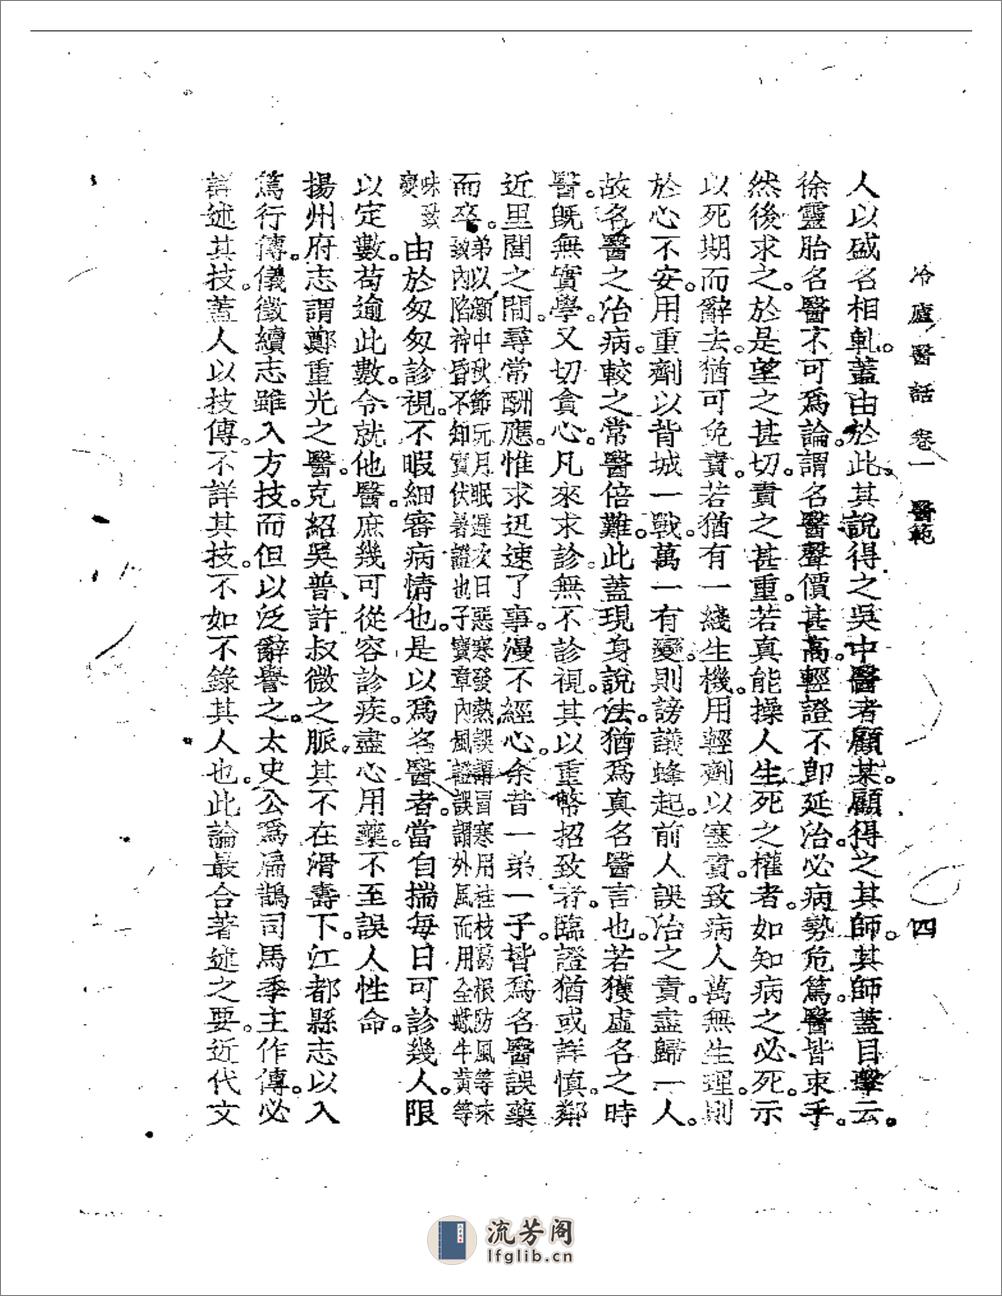 冷廬醫話 卷一 醫範 四
人以盛名相軋。蓋由於此。其說得之吳中醫者顧某。顧得之其師。其師蓋目擊云。
徐靈胎名醫不可爲論。謂名醫聲價甚高。輕證不卽延治。必病勢危篤。醫皆束手。
然後求之。於是望之甚切。責之甚重。若真能操人生死之權者。如知病之必死。示
以死期而辭去。猶可免責。若猶有一綫生機。用輕劑以塞責。致病人萬無生理。則
於心不安。用重劑以背城一戰。萬一有變。則謗議蜂起。前人誤治之責。盡歸一人。
故名醫之治病。較之常醫倍難。此蓋現身說法。猶爲真名醫言也。若獲虛名之時
醫。旣無實學。又切貪心。凡來求診。無不診視。其以重幣招致者。臨證猶或詳慎。鄰
近里閭之間。尋常酬應。惟求迅速了事。漫不經心。余昔一弟一子。皆爲名醫誤藥
而卒。弟以灝中秋節玩月眠遲次日惡寒發熱誤謂冒寒用桂枝葛根防風等味
致內陷神昏不知實伏暑證也子寶章內風證誤謂外風而用全蠍牛黃等
味致變 由於匆匆診視。不暇細審病情也。是以爲名醫者。當自揣每日可診幾人。限
以定數。苟逾此數。令就他醫。庶幾可從容診疾。盡心用藥。不至誤人性命。
揚州府志謂鄭重光之醫。克紹吳普、許叔微之脈。其不在滑壽下。江都縣志以入
篤行傳。儀徵續志雖入方技。而但以泛辭譽之。太史公爲扁鵲司馬季主作傳。必
詳述其技。蓋人以技傳。不詳其技。不如不錄其人也。此論最合著述之要。近代文
流芳阁
lfglib.cn